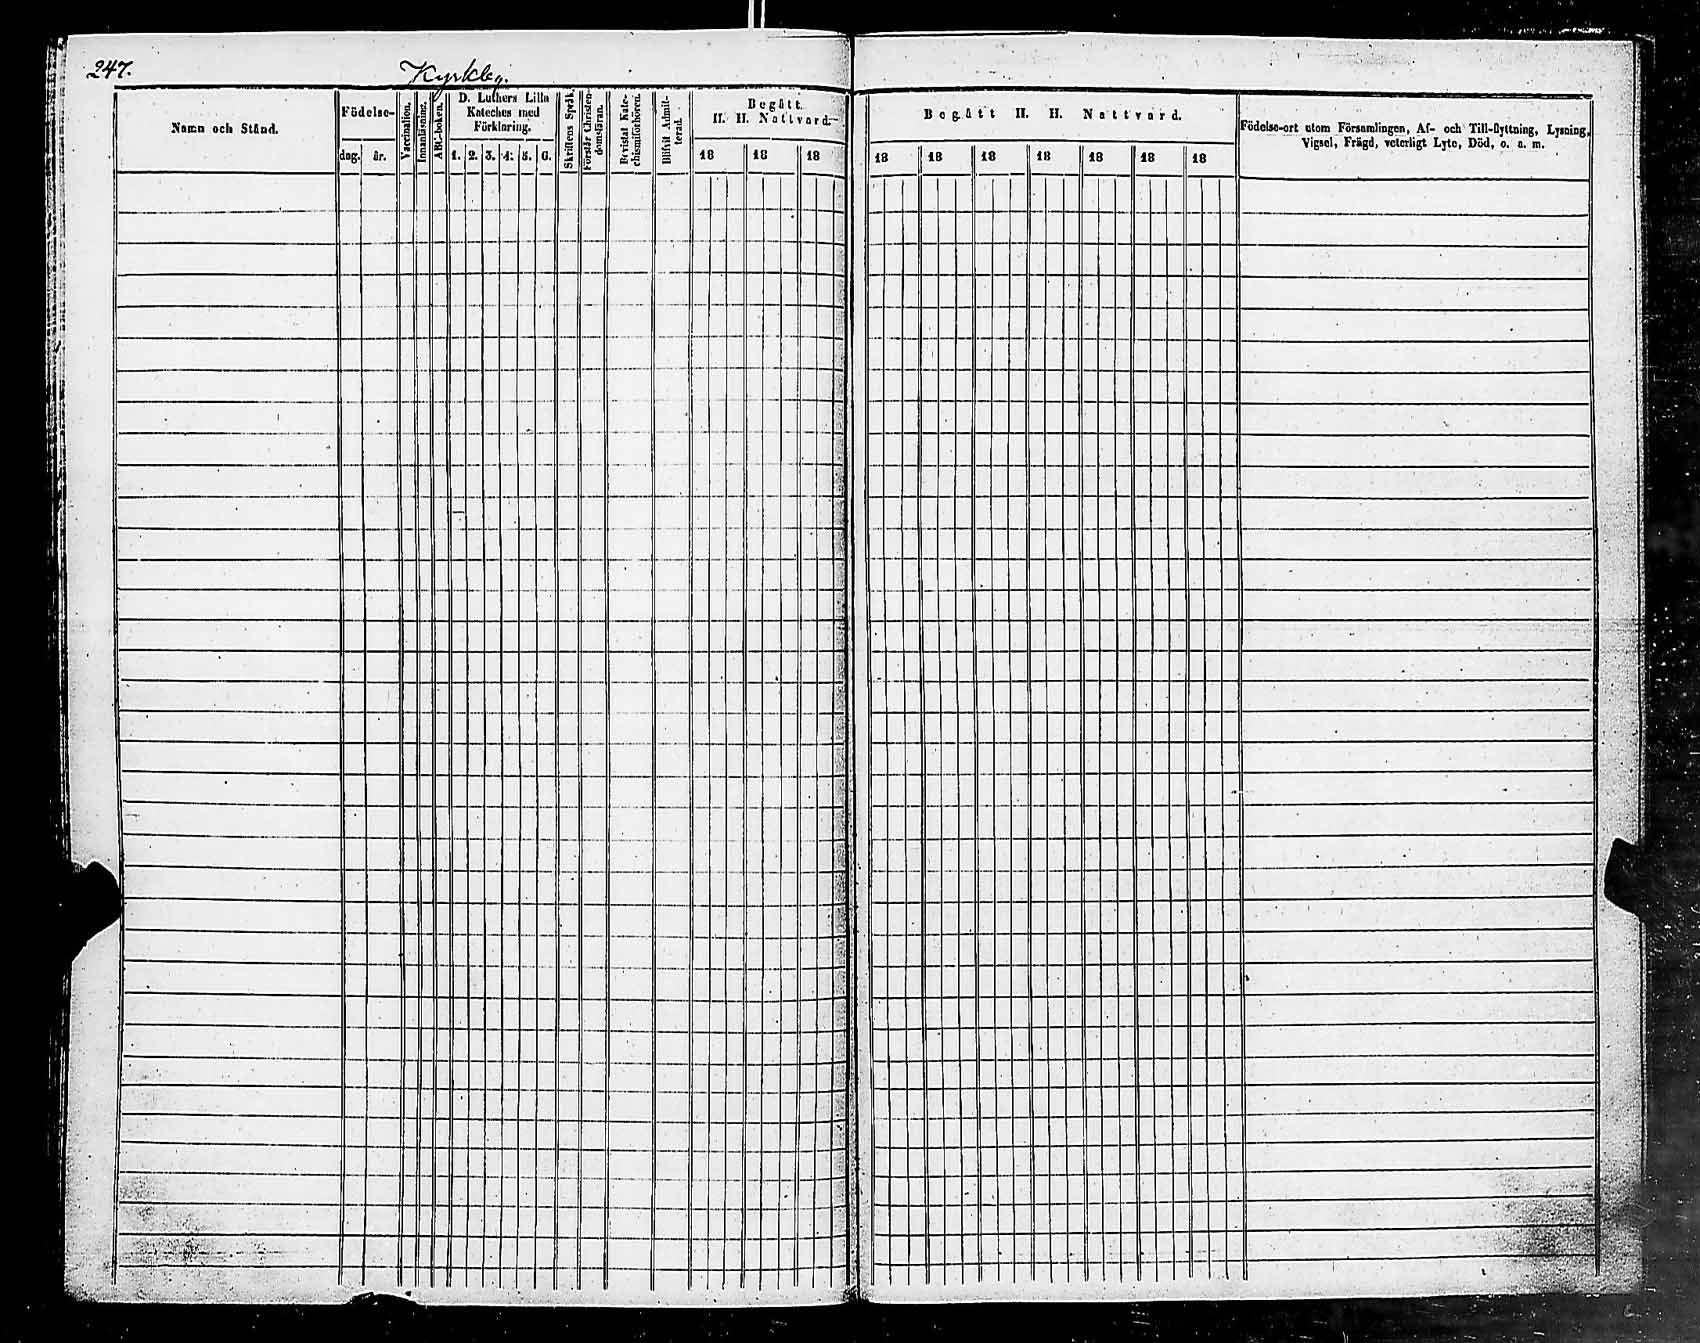 247.
Kyrkby.
Namn och Stånd.
Födelse-
dag. år.
Vaccination.
Innanläsning.
ABC-boken.
D. Luthers Lilla
Kateches med
Förklaring.
1. 2. 3. 4. 5. 6.
Skriftens Språk.
Förstår Christen-
domsläran.
Bevistat Kate-
chismiförhören.
Blifvit Admit-
terad.
Begått
H. H. Nattvard.
18 18 18
Begått H. H. Nattvard.
18 18 18 18 18 18 18
Födelse-ort utom Församlingen, Af- och Till-flyttning, Lysning,
Vigsel, Frägd, veterligt Lyte, Död, o. a. m.